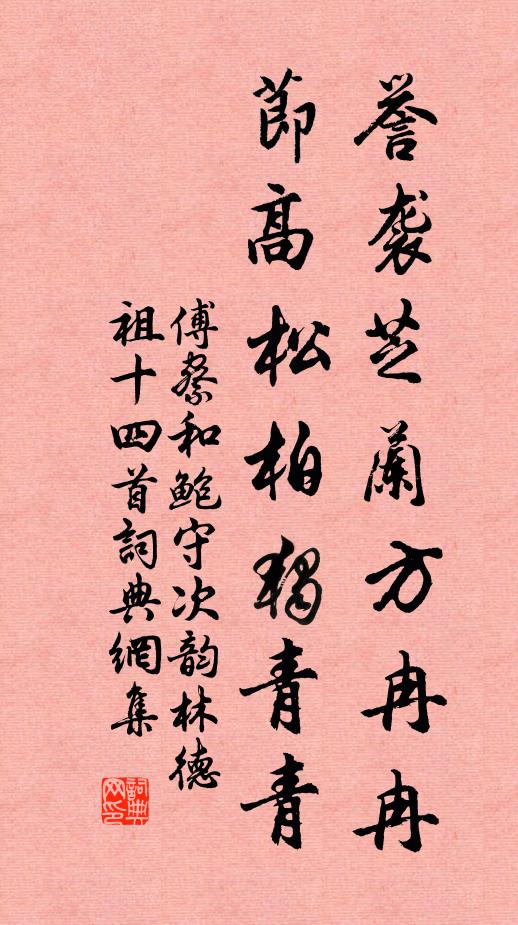 誉袭芝兰方冉冉
節高松柏独青青
傅察和鲍守次韵林德
祖十四首詞典網集
詞典网印